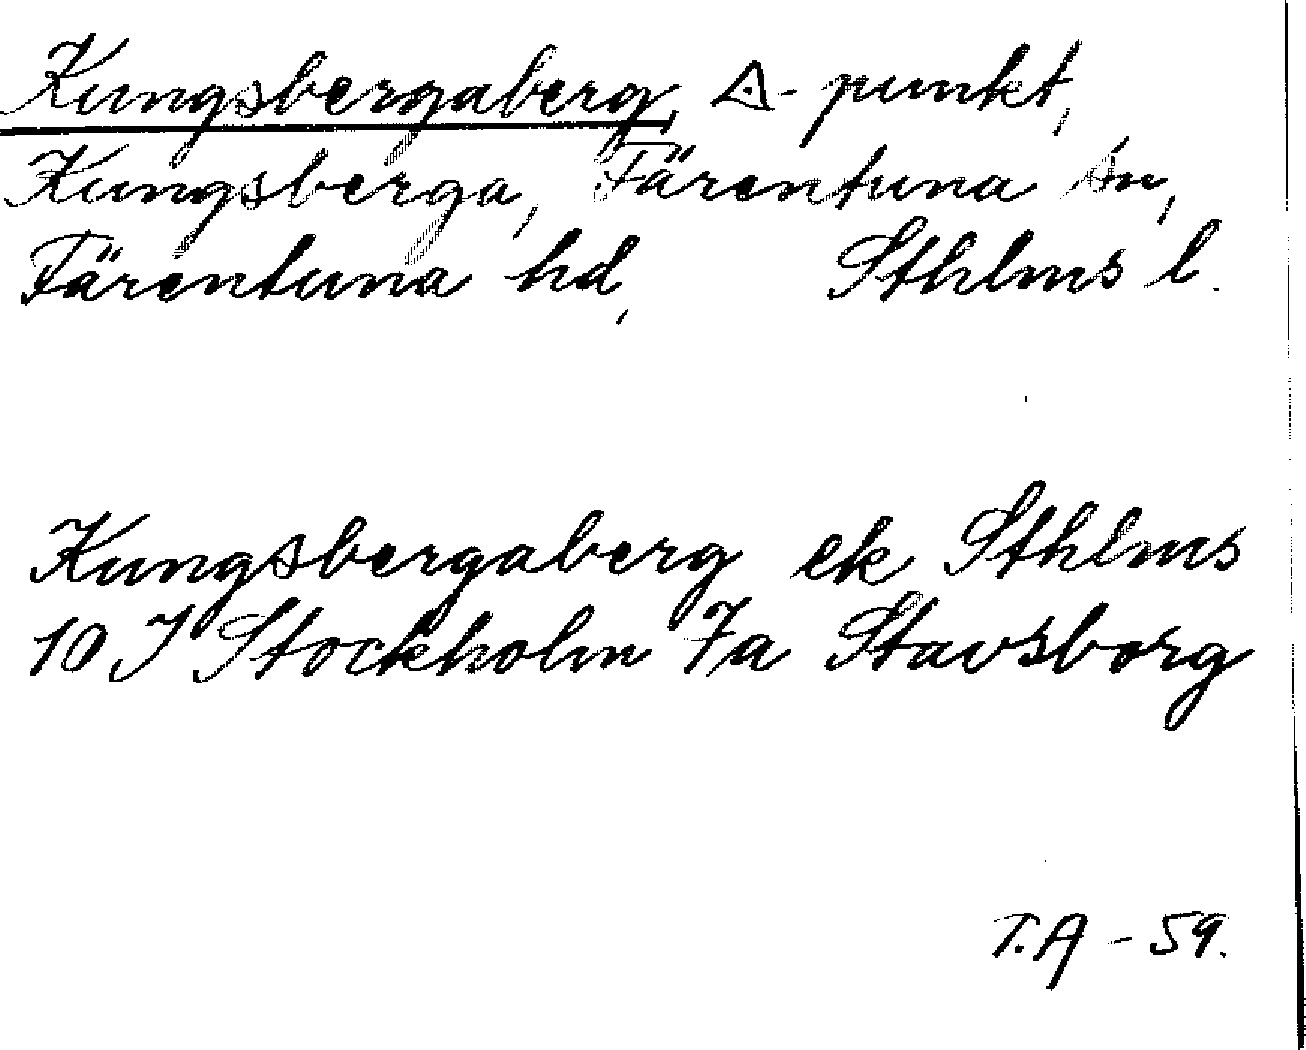 Kungsbergaberg, △-punkt,
Kungsberga, Färentuna sn,
Färentuna hd, Sthlms l.
Kungsbergaberg ek Sthlms
10 I Stockholm 7a Stavsborg
T.A - 59.